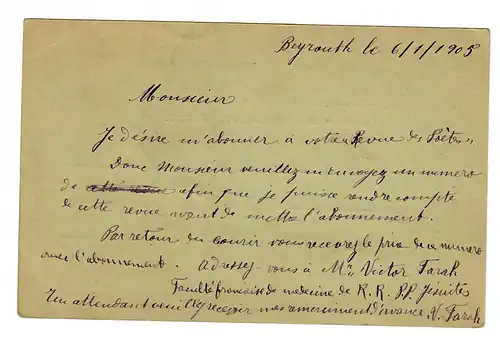 Beyrouth le 6/1/1905
Monsieur
Je désire m'abonner à votre Revue des Poètes
Donc Monsieur veuillez m'envoyez un numero
de cette revue afin que je puisse rendre compte
de cette revue avant de mettre l'abonnement.
Par retour du courir vous recevrez le prix de ce numero
avec l'abonnement. Adressez-vous à Mr Victor Farah
Faculté française de medecine de R. R. P.P. Jésuites
En attendant veuillez recevoir mes d'avance V. Farah